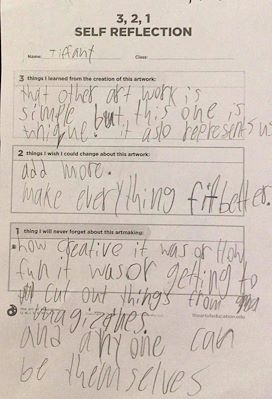 3, 2, 1
SELF REFLECTION
Name: Tifant Class:
3 things I learned from the creation of this artwork:
that other art work is
simple but, this one is
unique! it aslo represents us
2 things I wish I could change about this artwork:
add more.
make everything fit better.
1 thing I will never forget about this artmaking:
how creative it was or How
fun it was or getting to
cut out things from
magizches
theartofeducation.edu
and any one can
be themselves